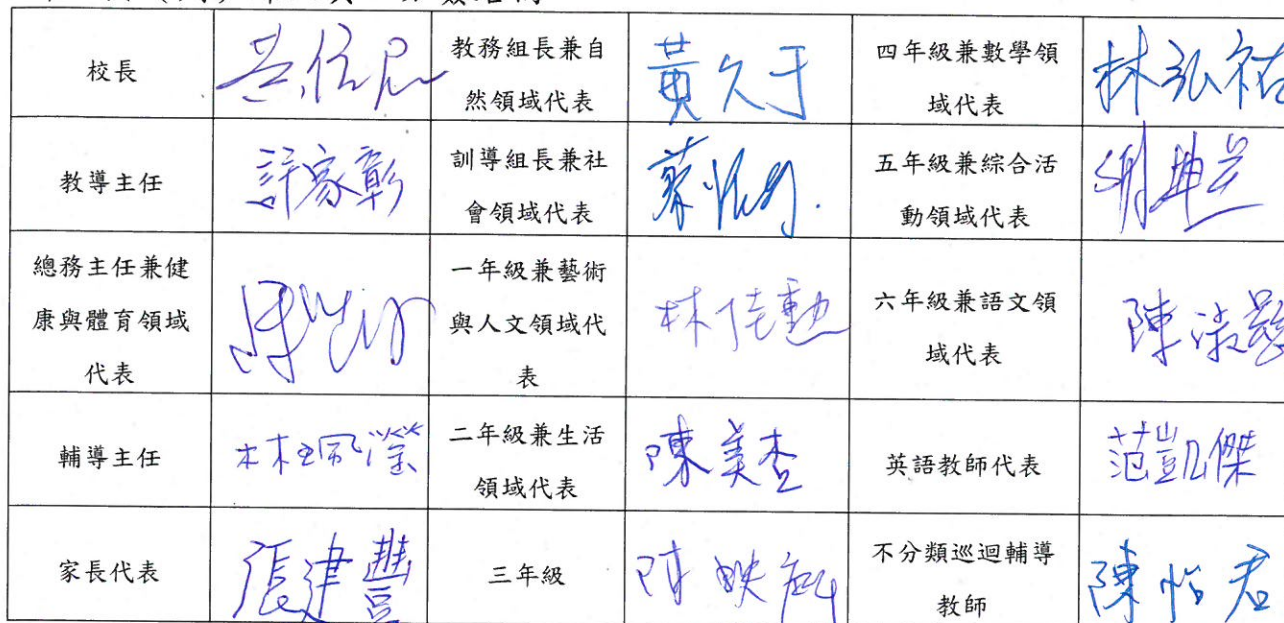 校長 黃信恩 教務組長兼自然領域代表 黃久于 四年級兼數學領域代表 林弘祐
教導主任 許家彰 訓導組長兼社會領域代表 五年級兼綜合活動領域代表
總務主任兼健康與體育領域代表 一年級兼藝術與人文領域代表 林佳勳 六年級兼語文領域代表 陳淑慈
輔導主任 林珮瀅 二年級兼生活領域代表 陳美杏 英語教師代表 范凱傑
家長代表 張建豐 三年級 不分類巡迴輔導教師 陳怡君